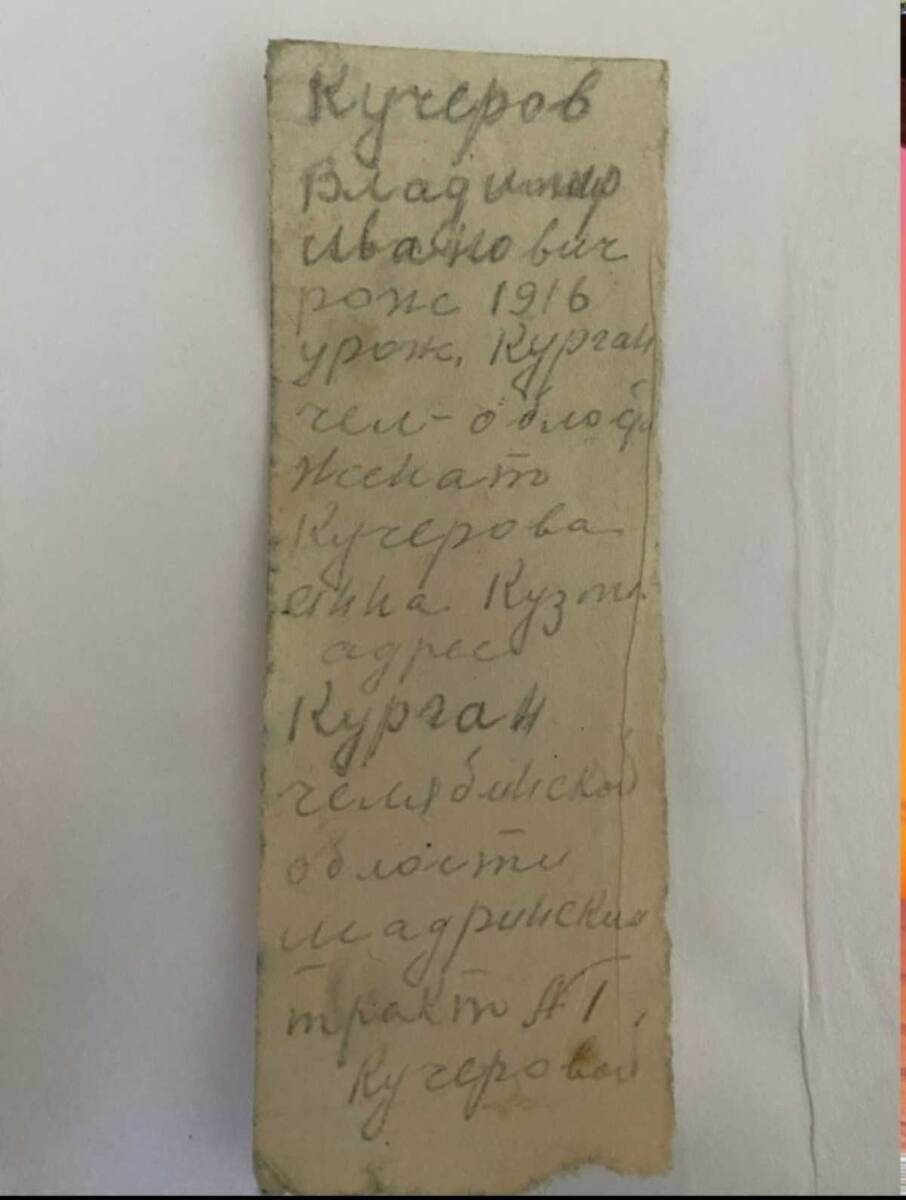 Кучеров
Владимир
Иванович
рожс 1916
урож. Курган
чел-облос
женат
Кучерова
Анна Кузм
адрес
Курган
челябинской
области
шадринский
тракт
Кучеровой